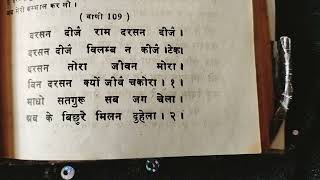 अब मेरी सम्भाल कर लो ।
( वाणी 109 )
दरसन दीजै राम दरसन दीजै ।
दरसन दीजै विलम्ब न कीजै ।टेक।
दरसन तोरा जीवन मोरा ।
बिन दरसन क्यों जीवै चकोरा । १ ।
माधो सतगुरू सब जग चेला ।
अब के बिछुरे मिलन दुहेला । २ ।